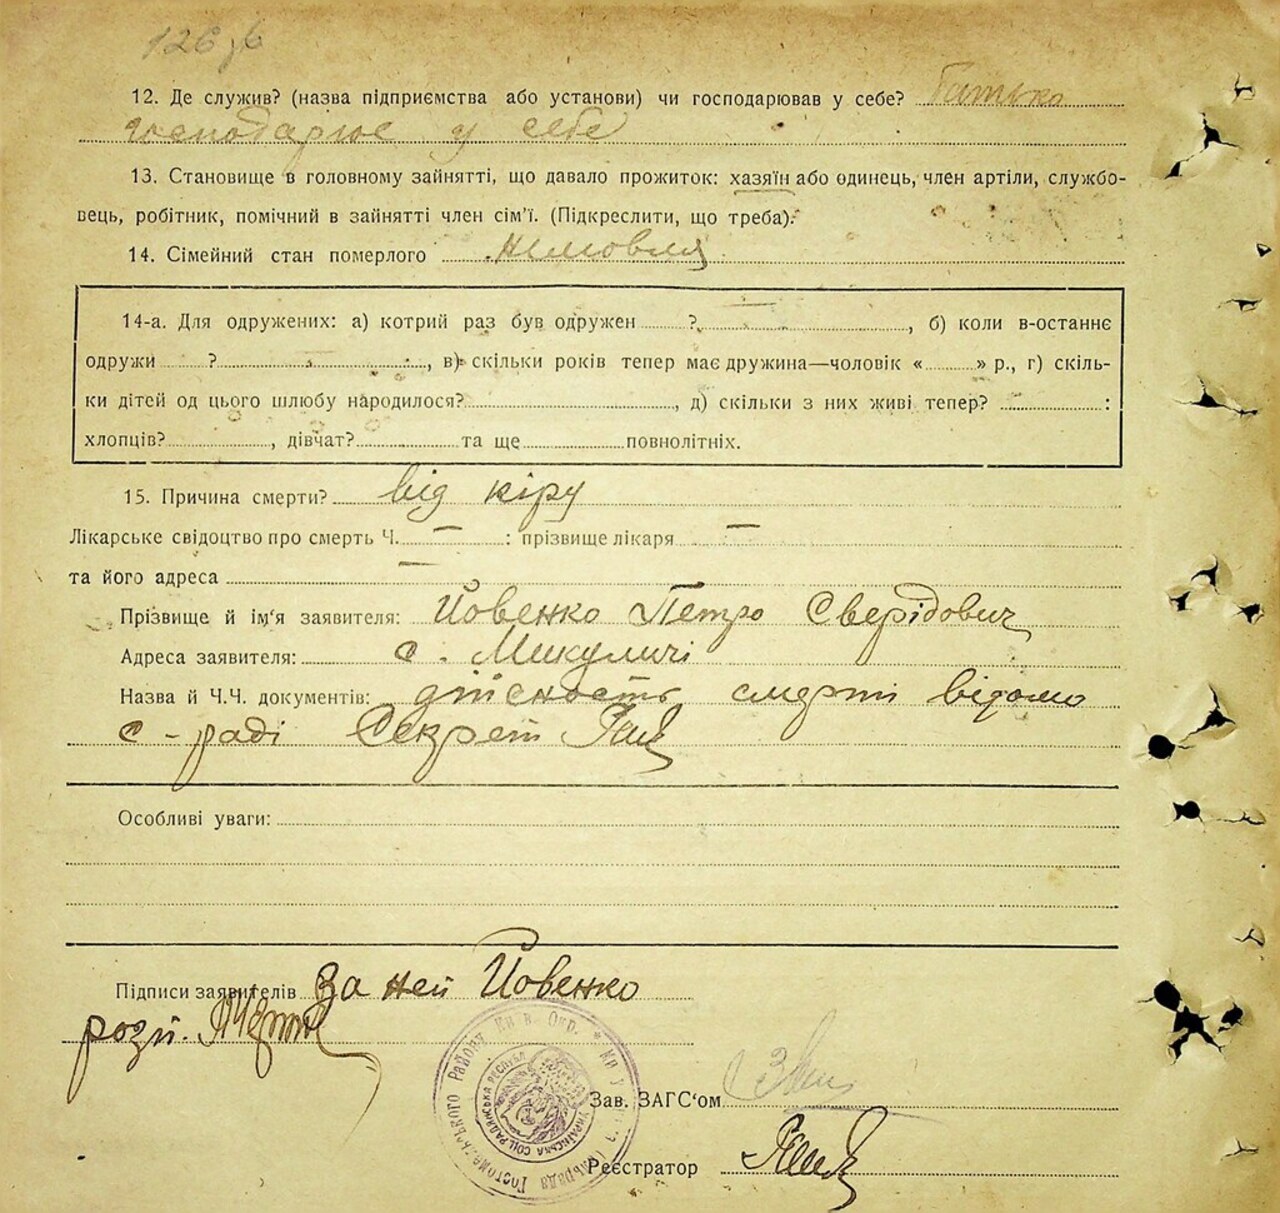 126
12. Де служив? (назва підприємства або установи) чи господарював у себе? Батько
господарює у себе
13. Становище в головному зайнятті, що давало прожиток: хазяїн або одинець, член артіли, службо-
вець, робітник, помічний в зайнятті член сім'ї. (Підкреслити, що треба).
14. Сімейний стан померлого Немовля
14-а. Для одружених: а) котрий раз був одружен ?, б) коли в-останнє
одружи ?, в) скільки років тепер має дружина—чоловік « » р., г) скіль-
ки дітей од цього шлюбу народилося?, д) скільки з них живі тепер? :
хлопців?, дівчат? та ще повнолітніх.
15. Причина смерти? від кіру
Лікарське свідоцтво про смерть Ч. — : прізвище лікаря —
та його адреса —
Прізвище й ім'я заявителя: Йовенко Петро Сверідович
Адреса заявителя: с. Микуличі
Назва й Ч.Ч. документів: дійсность смерті відомо
с-раді Секрет
Особливі уваги:
Підписи заявителів За ней Йовенко
розп.
Гостомельського Района Київ. Окр.
УКРАЇНСЬКА СОЦ. РАДЯНСЬКА РЕСПУБ
Зав. ЗАГС'ом
Реєстратор